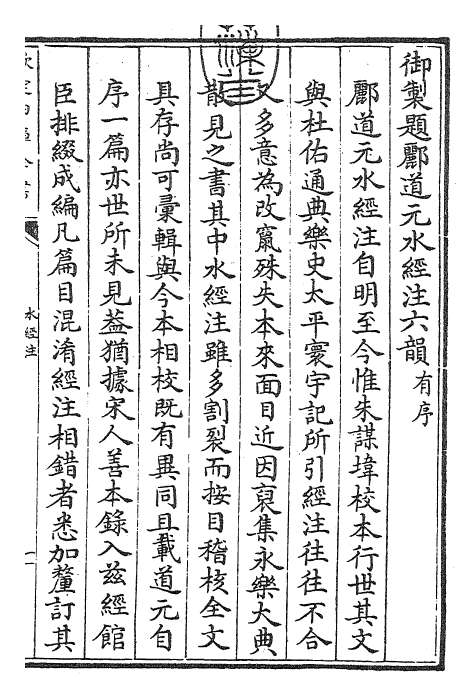 御製題酈道元水經注六韻有序
酈道元水經注自明至今惟朱謀㙔校本行世其文
與杜佑通典樂史太平寰宇記所引經注往往不合
又多意為改竄殊失本來面目近因裒集永樂大典
散見之書其中水經注雖多割裂而按目稽核全文
具存尚可彙輯與今本相校既有異同且載道元自
序一篇亦世所未見蓋猶據宋人善本錄入茲經館
臣排綴成編凡篇目混淆經注相錯者悉加釐訂其
欽定四庫全書
水經注
一